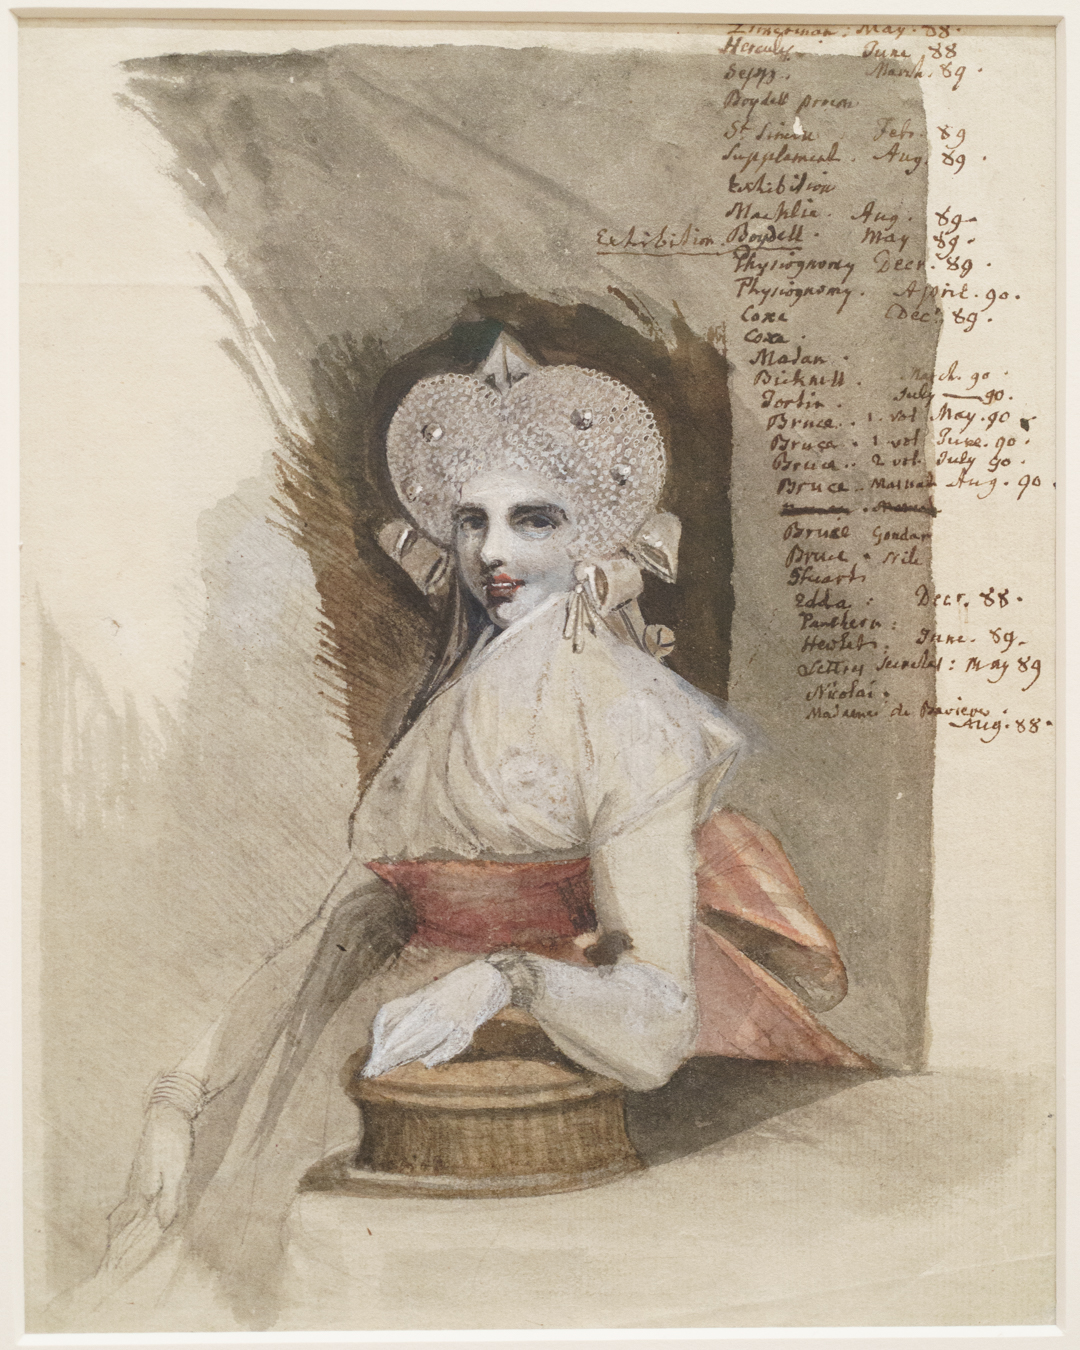 Zimerman : May. 88.
Hercules June 88
Septr. March. 89.
Boydell proem
St. Simon Febr. 89
Supplement. Aug. 89.
Exhibition
Macklin. Aug. 89.
Exhibition. Boydell. May 89.
Physiognomy Decr. 89.
Physiognomy. April. 90.
Coxe Dec. 89.
Coxe.
Madan.
Bicknell. March. 90
Jortin. July 90.
Bruce. 1. vol May. 90
Bruce. 1 vol June. 90.
Bruce.. 2 vol. July 90.
Bruce.. Aug. 90.
Bruce Gondar
Bruce Nile
Stuart
Edda : Decr. 88.
Pantheon :
June. 89.
Lettres Secretes : May 89
Nicolai.
Madame de Baviere.
Aug. 88.